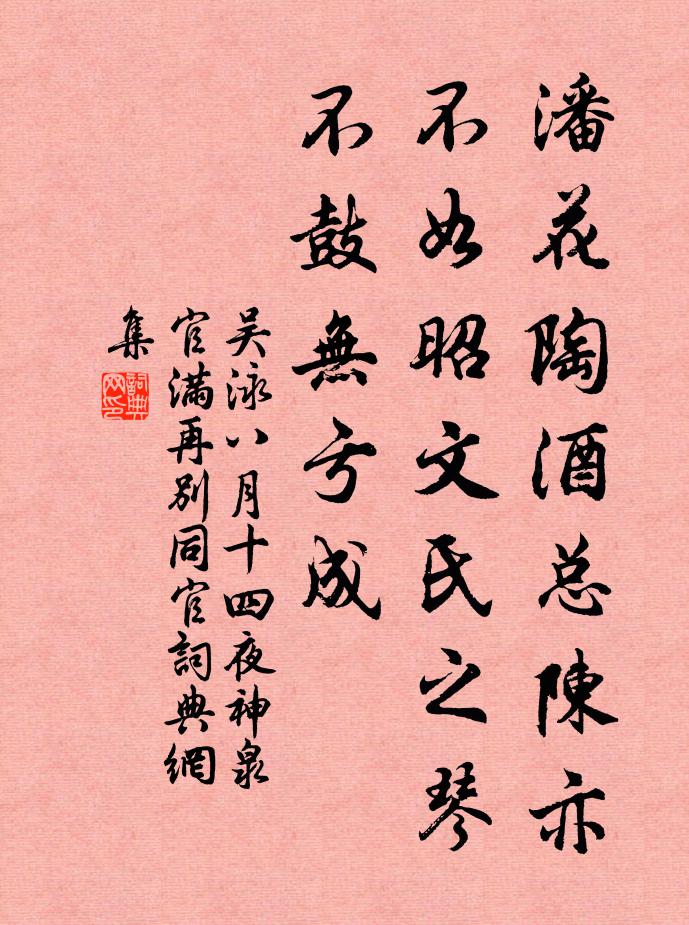 潘花陶酒总陳亦
不如昭文氏之琴
不鼓無亏成
吴泳八月十四夜神泉
官滿再别同官詞典網
集
詞典
网印